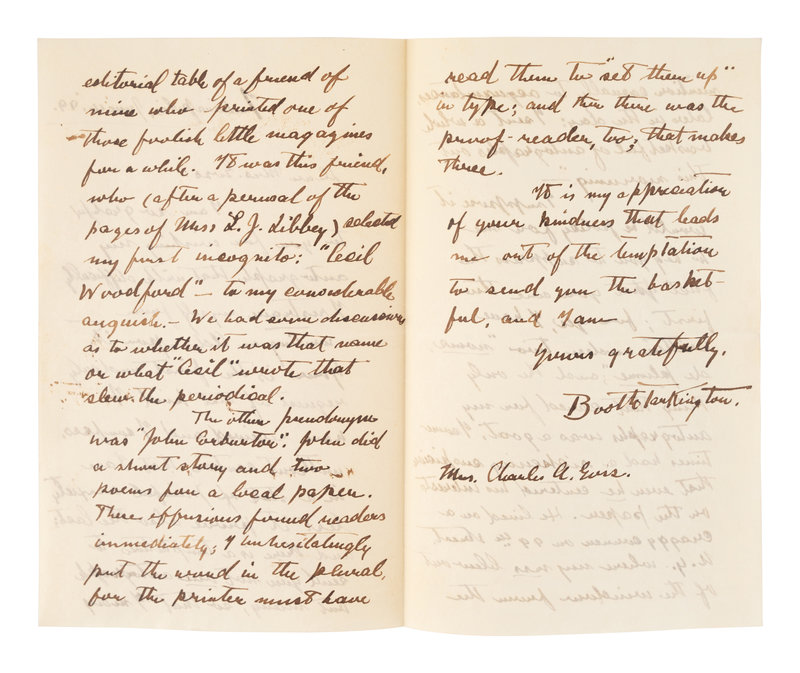 editorial table of a friend of
mine who printed one of
those foolish little magazines
for a while. It was this friend,
who (after a perusal of the
pages of Miss L. J. Libbey) selected
my first incognito: "Cecil
Woodford" — to my considerable
anguish. — We had some discussion
as to whether it was that name
or what "Cecil" wrote that
slew the periodical.
The other pseudonym
was "John Corburton". John did
a short story and two
poems for a local paper.
These effusions found readers
immediately; I unhesitatingly
put the word in the plural,
for the printer must have
read them to "set them up"
in type; and then there was the
proof-reader, too; that makes
three.
It is my appreciation
of your kindness that leads
me out of the temptation
to send you the basket-
ful, and I am
Yours gratefully,
Booth Tarkington.
Mrs. Charles A.